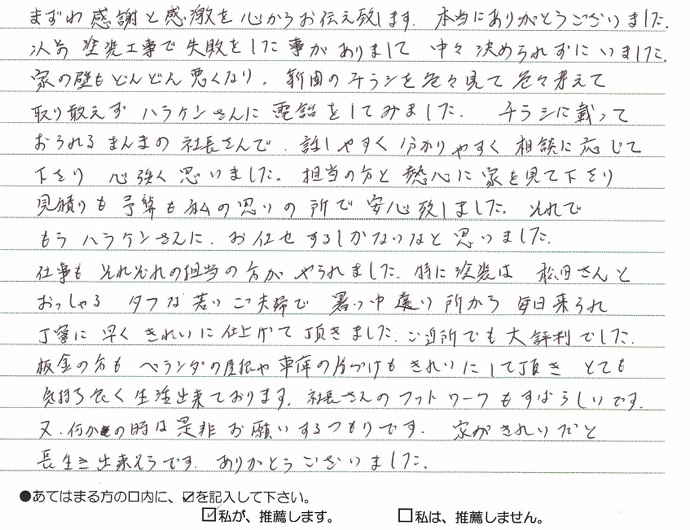 まずわ感謝と感激を心からお伝え致します。本当にありがとうございました。
以前塗装工事で失敗をした事がありまして中々決められずにいました。
家の壁もどんどん悪くなり、新聞のチラシを色々見て色々考えて
取り敢えずハラケンさんに電話をしてみました。チラシに載って
おられるまんまの社長さんで、話しやすく分かりやすく相談に応じて
下さり心強く思いました。担当の方と熱心に家を見て下さり
見積りも予算も私の思いの所で安心致しました。それで
もうハラケンさんに、お任せするしかないなと思いました。
仕事もそれぞれの担当の方がやられました。特に塗装は松田さんと
おっしゃるタフな若いご夫婦で暑い中遠い所から毎日来られ
丁寧に早くきれいに仕上げて頂きました。ご近所でも大評判でした。
板金の方もベランダの屋根や車庫の片づけもきれいにして頂きとても
気持ち良く生活出来ております。社長さんのフットワークもすばらしいです。
又、何かの時は是非お願いするつもりです。家がきれいだと
長生き出来そうです。ありがとうございました。
●あてはまる方の口内に、☑を記入して下さい。
☑私が、推薦します。 □私は、推薦しません。